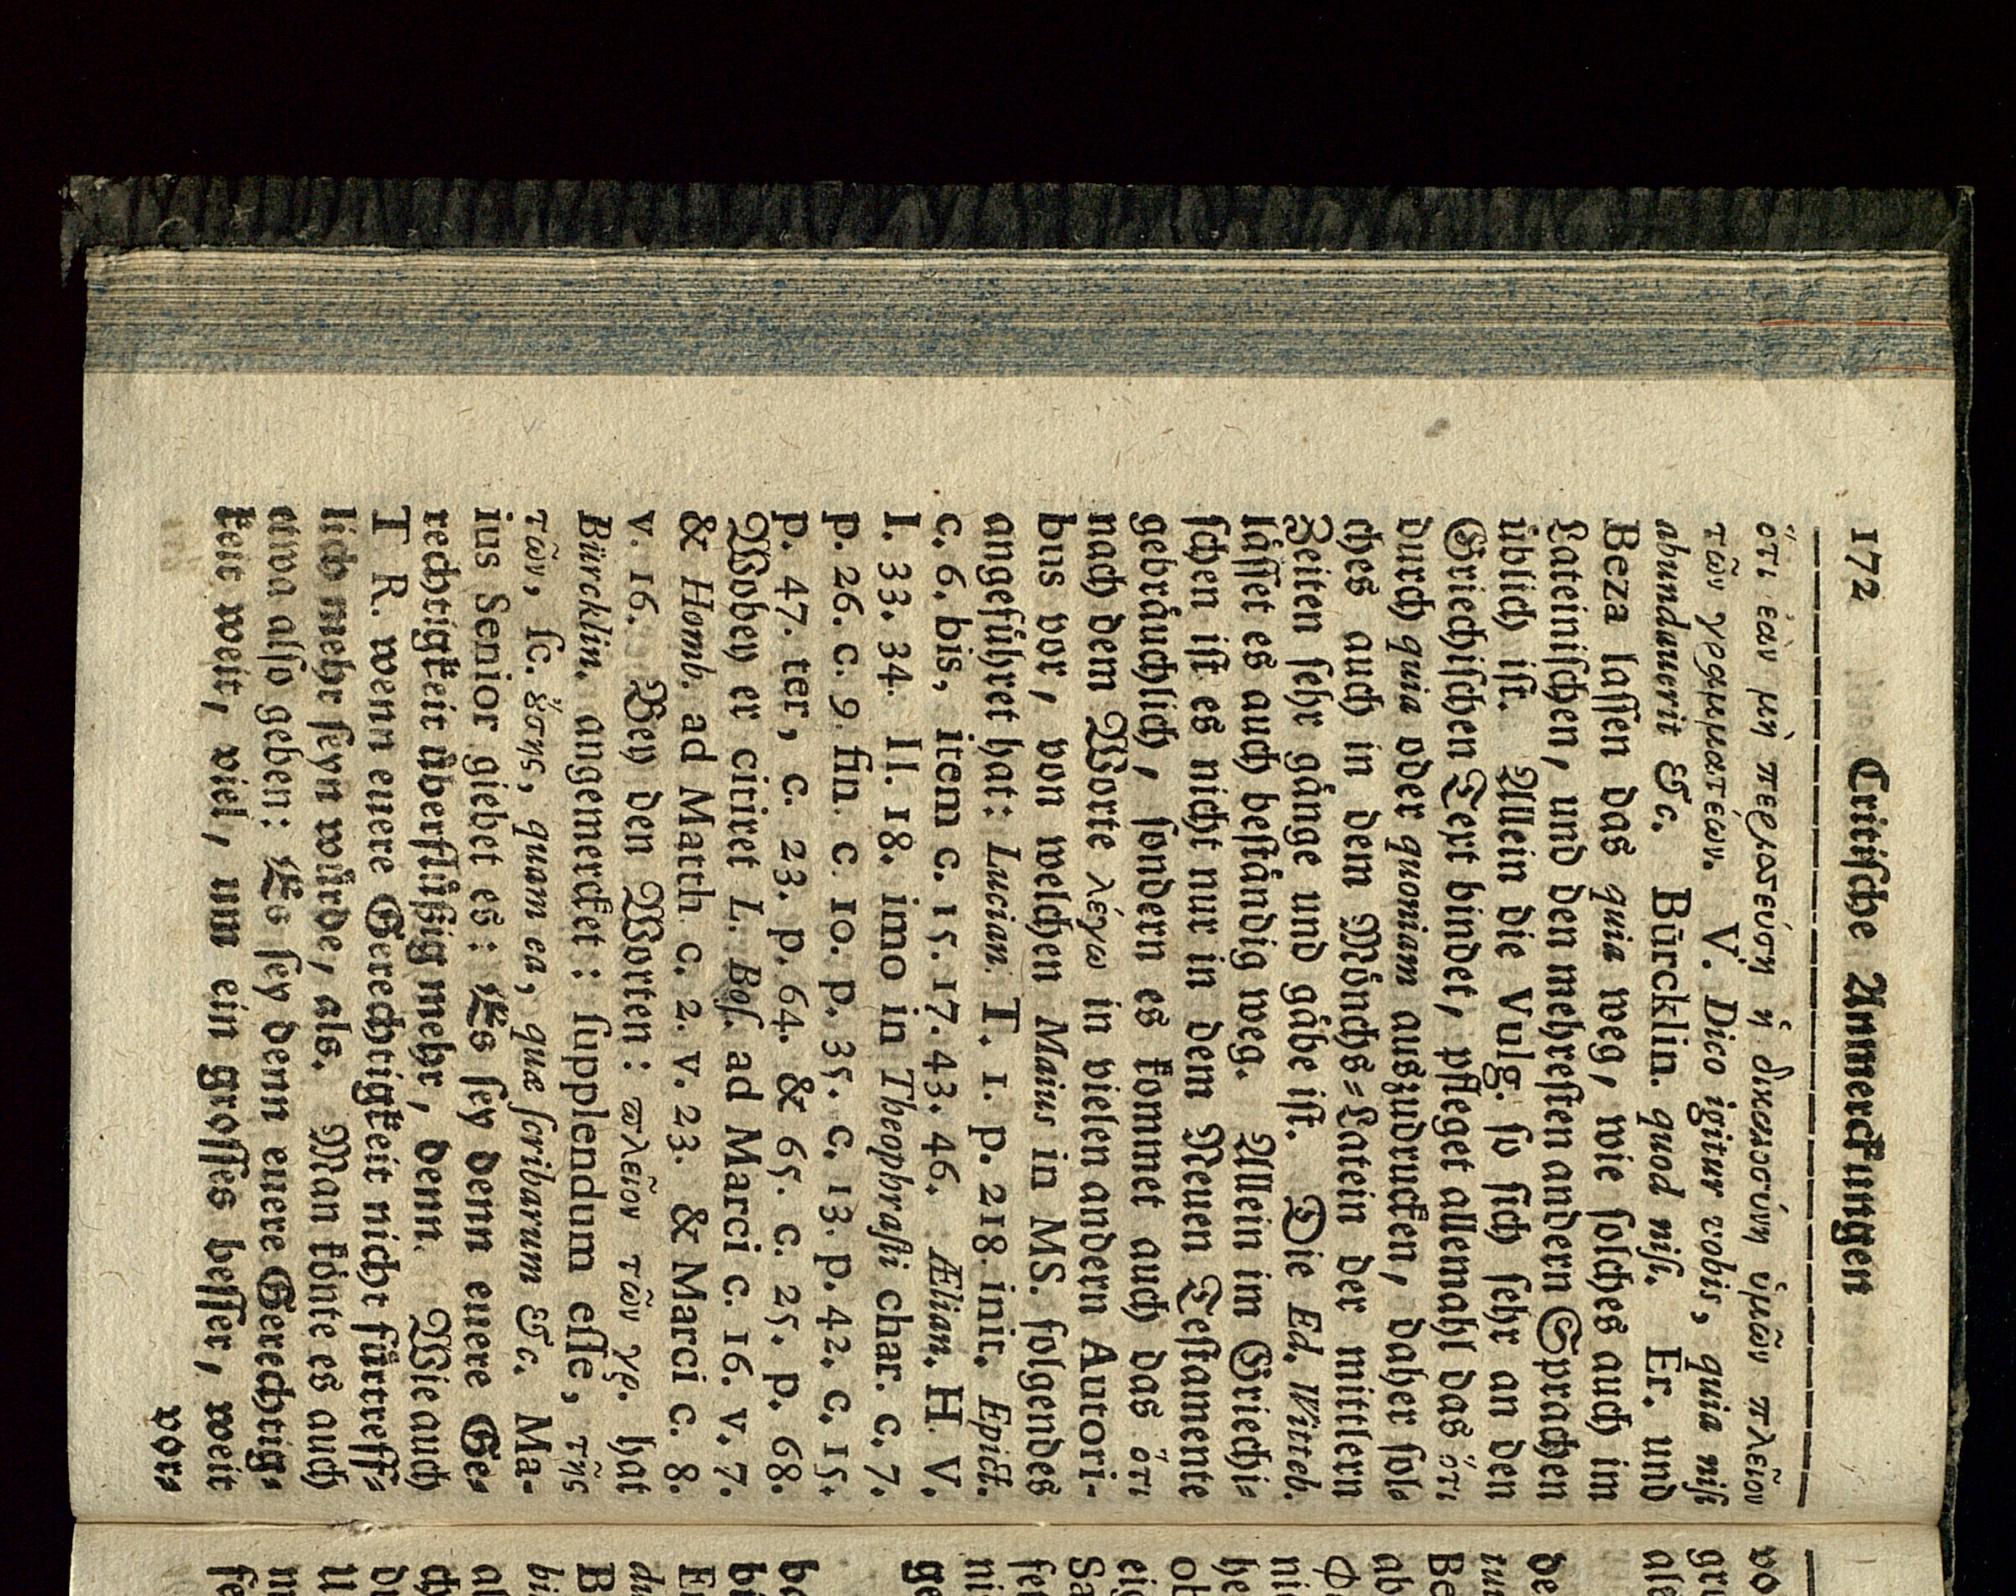 172 Critiſche Anmerckungen
ὅτι ἐὰν μὴ περισσεύση ἡ δικαιοσύνη ὑμῶν πλεῖον
τῶν γραμματέων. V. Dico igitur vobis, quia niſi
abundauerit &c. Bürcklin. quod niſi. Er. und
Beza laſſen das quia weg, wie ſolches auch im
Lateiniſchen, und den mehreſten andern Sprachen
üblich iſt. Allein die Vulg. ſo ſich ſehr an den
Griechiſchen Text bindet, pfleget allemahl das ὅτι
durch quia oder quoniam auszudrucken, daher ſol-
ches auch in dem Mönchs-Latein der mittlern
Zeiten ſehr gänge und gäbe iſt. Die Ed. Witteb.
läſſet es auch beſtändig weg. Allein im Griechi-
ſchen iſt es nicht nur in dem Neuen Teſtamente
gebräuchlich, ſondern es kommet auch das ὅτι
nach dem Worte λέγω in vielen andern Autori-
bus vor, von welchen Maius in MS. folgendes
angeführet hat: Lucian. T. 1. p. 218. init. Epict.
c. 6. bis, item c. 15. 17. 43. 46. Ælian. H. V.
I. 33. 34. II. 18. imo in Theophraſti char. c. 7.
p. 26. c. 9. fin. c. 10. p. 35. c. 13. p. 42. c. 15.
p. 47. ter, c. 23. p. 64. & 65. c. 25. p. 68.
Wobey er citiret L. Boſ. ad Marci c. 16. v. 7.
& Homb. ad Matth. c. 2. v. 23. & Marci c. 8.
v. 16. Bey den Worten: πλεῖον τῶν γρ. hat
Bürcklin. angemercket: ſupplendum eſſe, τῆς
τῶν, ſc. ὅσης, quam ea, quæ ſcribarum &c. Ma-
ius Senior giebet es: Es ſey denn euere Ge-
rechtigkeit überflüßig mehr, denn. Wie auch
T R. wenn euere Gerechtigkeit nicht fürtreff-
lich mehr ſeyn würde, als. Man könte es auch
etwa alſo geben: Es ſey denn euere Gerechtig-
keit weit, viel, um ein groſſes beſſer, weit
vor-